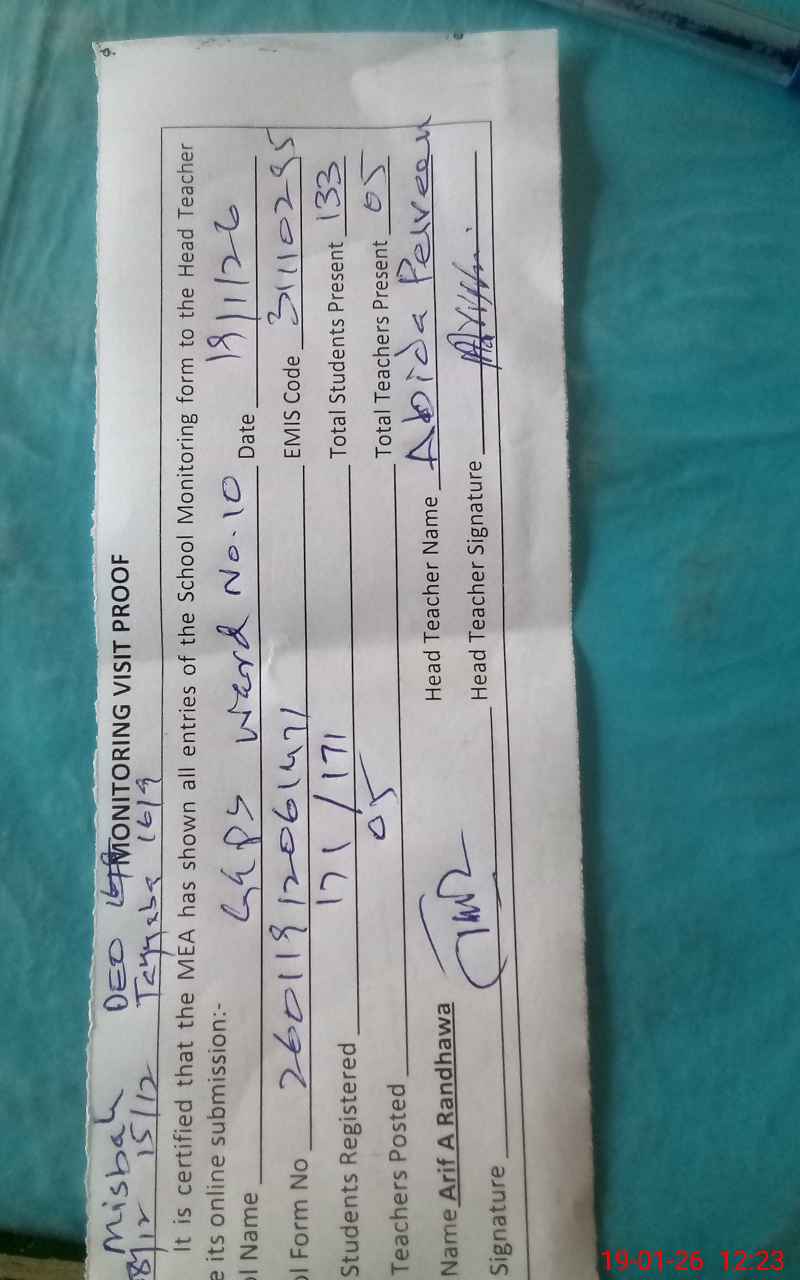 Misbah DEO
MONITORING VISIT PROOF
15/12 Tayyaba 16/9
It is certified that the MEA has shown all entries of the School Monitoring form to the Head Teacher
e its online submission:-
ol Name GGPS Ward No.10 Date 19/1/26
ol Form No 260119120611471 EMIS Code 31110295
Students Registered 171/171 Total Students Present 133
Teachers Posted 05 Total Teachers Present 05
Name Arif A Randhawa Head Teacher Name Abida Perveen
Signature Head Teacher Signature
19-01-26 12:23